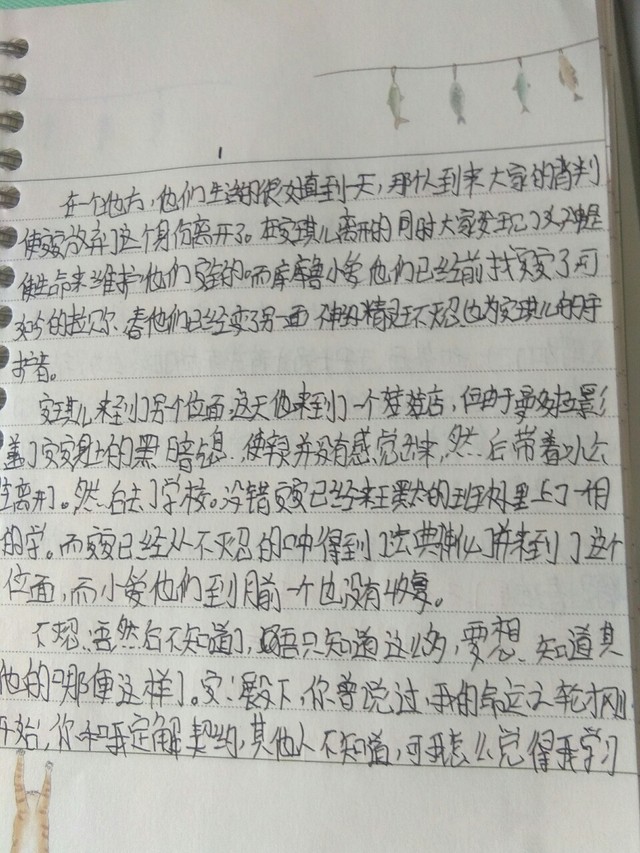 1
在一个地方,他们生活的很好直到一天,那人到来大家的背判
使安安放弃了这个身份离开了。在安琪儿离开的同时大家发现了又神是
使生命来维护他们安全的。而库库鲁小爱他们已经前找安安了可
的拉贝尔。看他们已经变了另一面 不忍 为安琪儿的守
护者。
安琪儿来到了另个位面,这天她来到了一个 店,但由于
盖了安安身上的黑暗息,使 并没有感觉出来,然后带着
离开了。然后去了学校。没错安安已经来王黑大的班树里上了一
的学。而安安已经从不忍的口中得到了法典 并来到了这个
位面,而小爱他们到目前一个也没有收复。
不忍:吾然后不知道了,吾只知道这么多,要想知道其
他的 那便这样了。安:殿下,你曾说过,我的命运之轮才刚
开始,你和我定解契约,其他人不知道,可我怎么觉得我学习